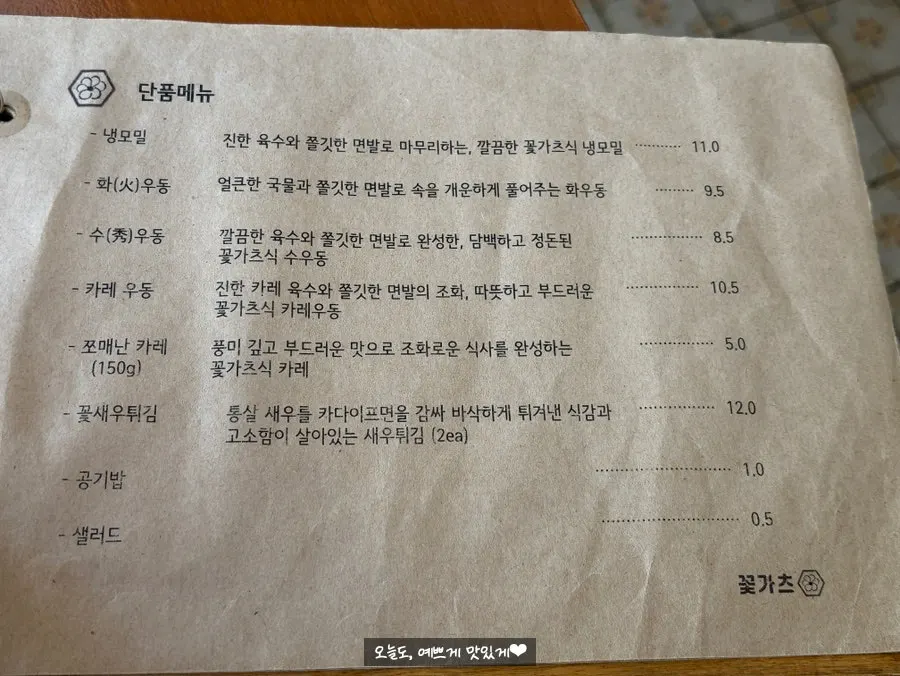 단품메뉴
- 냉모밀 진한 육수와 쫄깃한 면발로 마무리하는, 깔끔한 꽃가츠식 냉모밀 ········· 11.0
- 화(火)우동 얼큰한 국물과 쫄깃한 면발로 속을 개운하게 풀어주는 화우동 ········ 9.5
- 수(秀)우동 깔끔한 육수와 쫄깃한 면발로 완성한, 담백하고 정돈된 ··············· 8.5
꽃가츠식 수우동
- 카레 우동 진한 카레 육수와 쫄깃한 면발의 조화, 따뜻하고 부드러운 ··············· 10.5
꽃가츠식 카레우동
- 쪼매난 카레 풍미 깊고 부드러운 맛으로 조화로운 식사를 완성하는 ··············· 5.0
(150g) 꽃가츠식 카레
- 꽃새우튀김 통살 새우를 카다이프면을 감싸 바삭하게 튀겨낸 식감과 ··············· 12.0
고소함이 살아있는 새우튀김 (2ea)
- 공기밥 ···························· 1.0
- 샐러드 ···························· 0.5
꽃가츠
오늘도, 예쁘게 맛있게❤